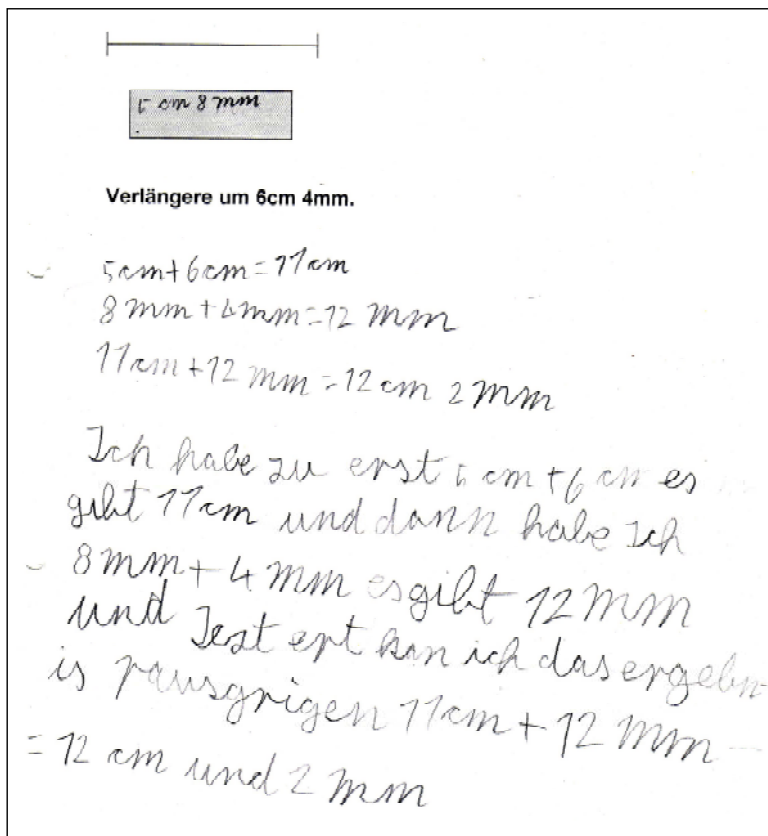 5 cm 8 mm
Verlängere um 6cm 4mm.
5cm+6cm=11cm
8mm+4mm=12 mm
11cm+12mm=12cm 2mm
Ich habe zu erst 5 cm+6 cm es
gibt 11cm und dann habe Ich
8mm+4mm esgibt 12mm
und Jezt erst kan ich das ergebn
is rausgrigen 11cm+12mm
=12 cm und 2 mm